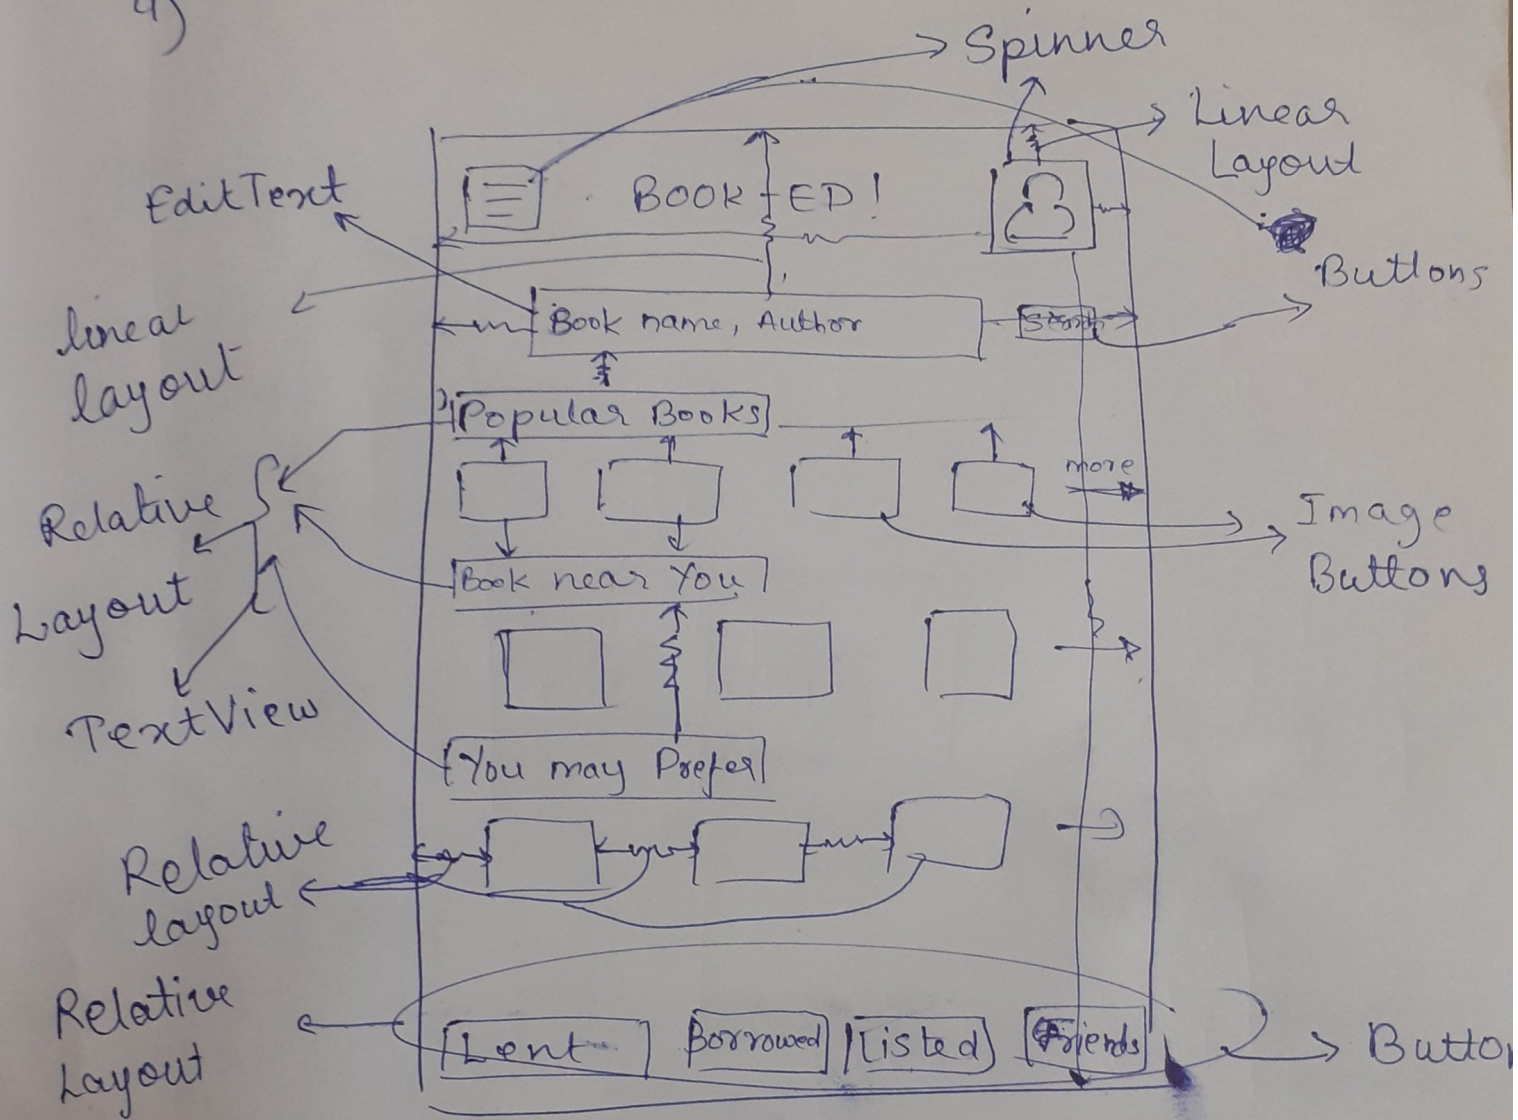 4)
Spinner
Linear
Layout
EditText
BOOK-ED!
Buttons
linear
layout
Book name, Author
Search
Popular Books
more
Relative
Layout
Image
Buttons
Book near You
TextView
You may Prefer
Relative
layout
Relative
Layout
Lent
Borrowed
Listed
Friends
Button